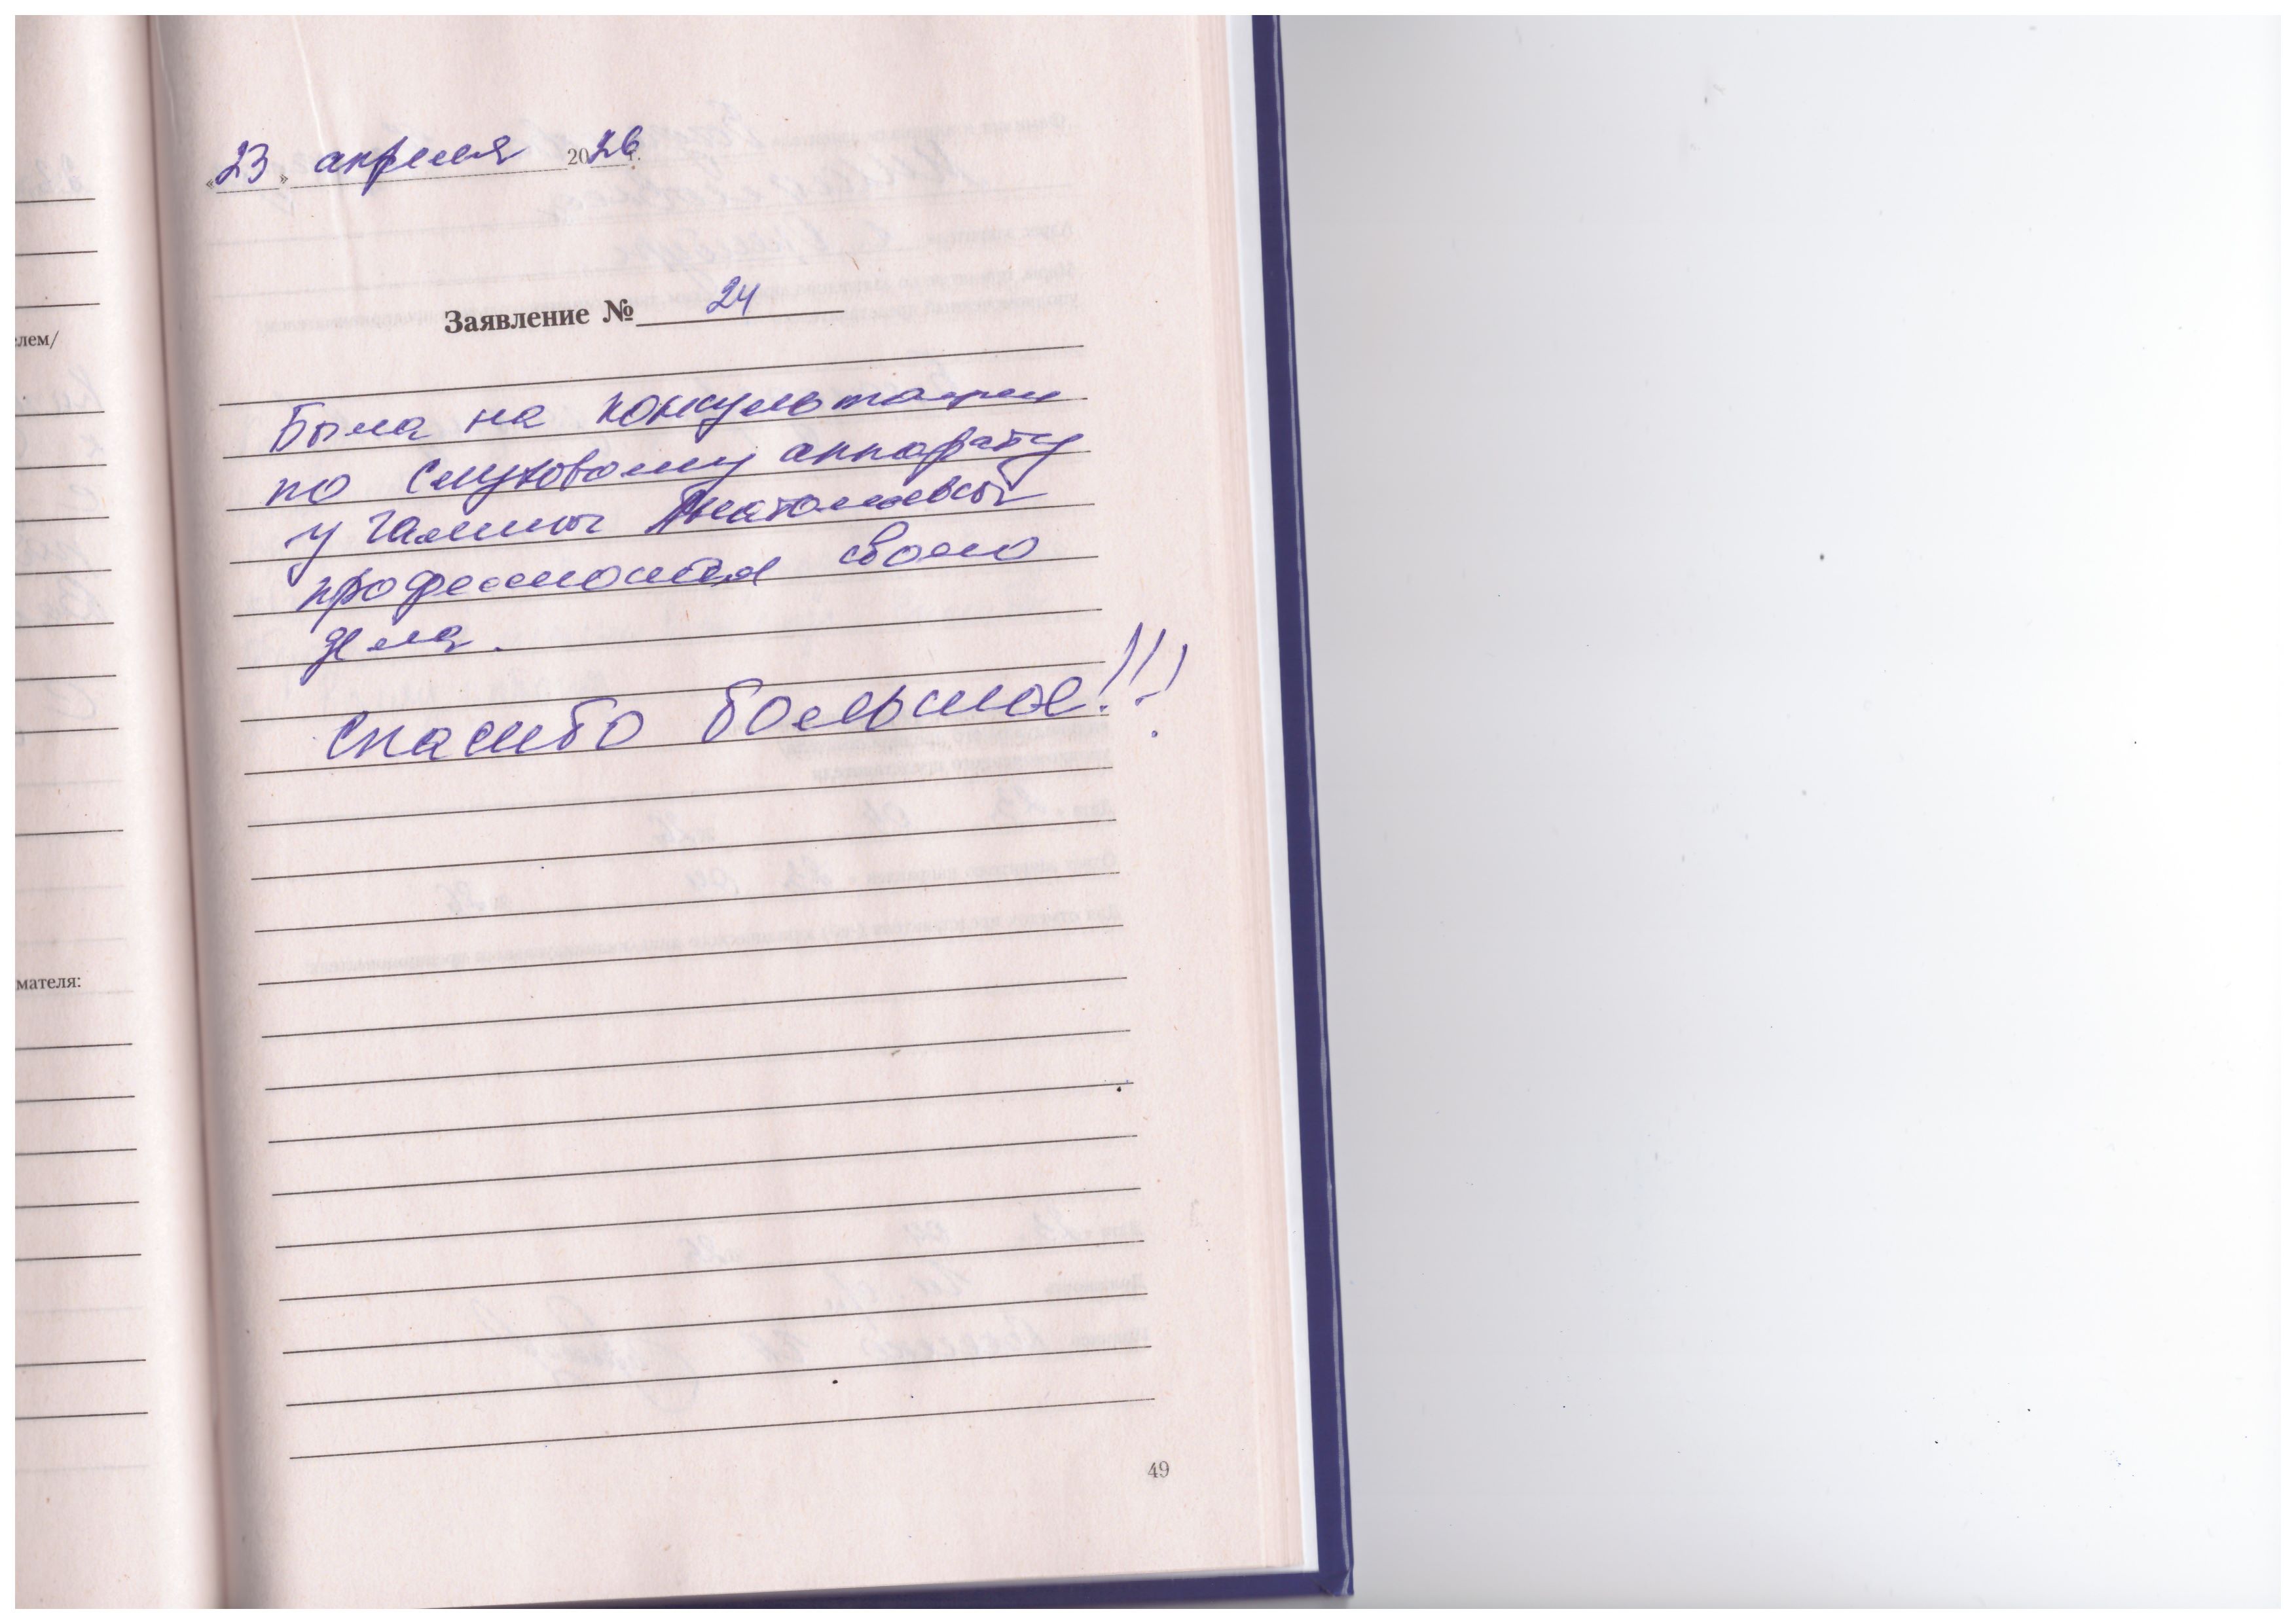 «23» апреля 2026 г.
елем/
Заявление № 24
Была на консультации
по слуховому аппарату
у Галины Анатольевной
профессионал своего
дела.
Спасибо большое!!!
мателя:
49